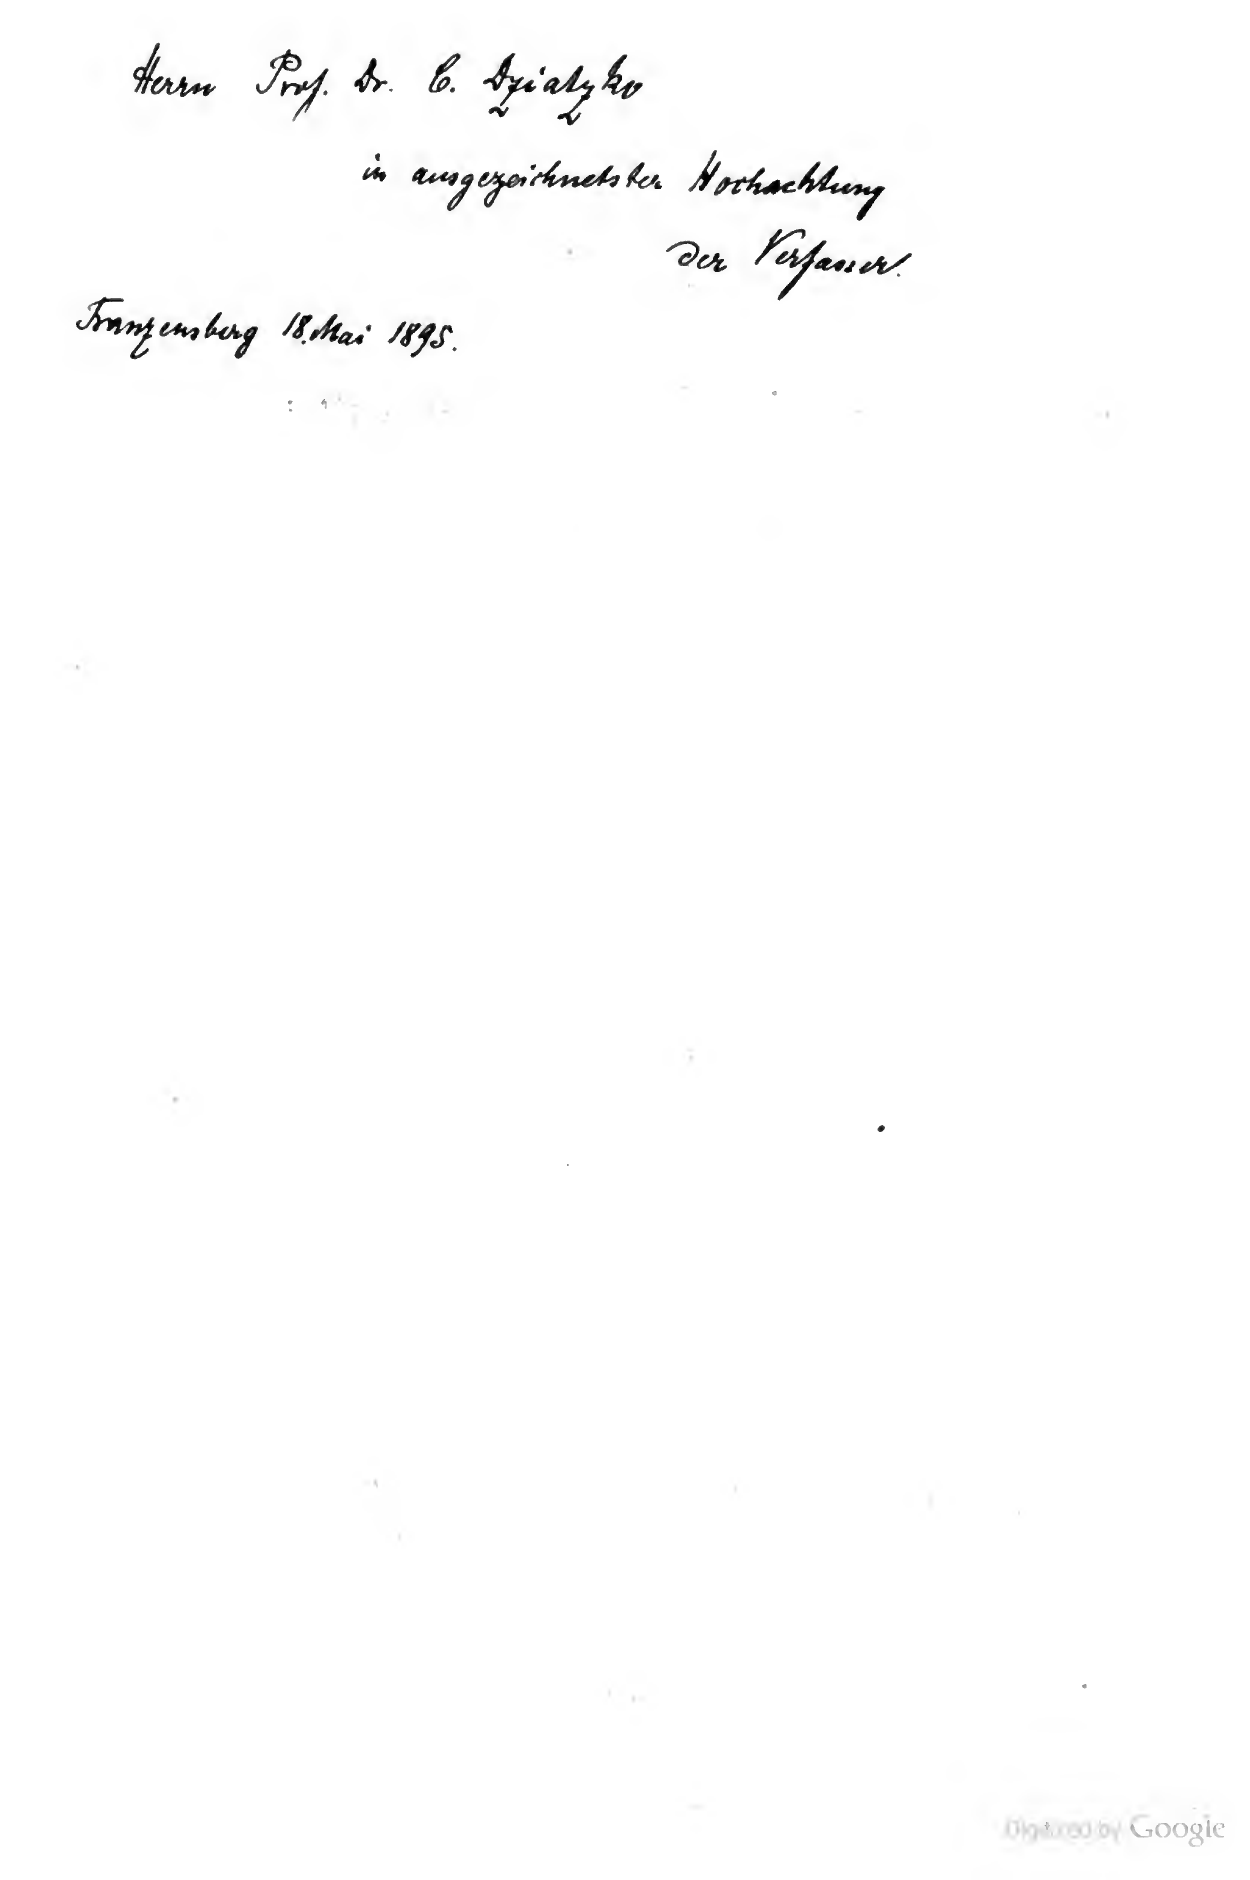 Herrn Prof. Dr. C. Dziatzko
in ausgezeichnetster Hochachtung
der Verfasser.
Franzensberg 18. Mai 1895.
Digitized by Google